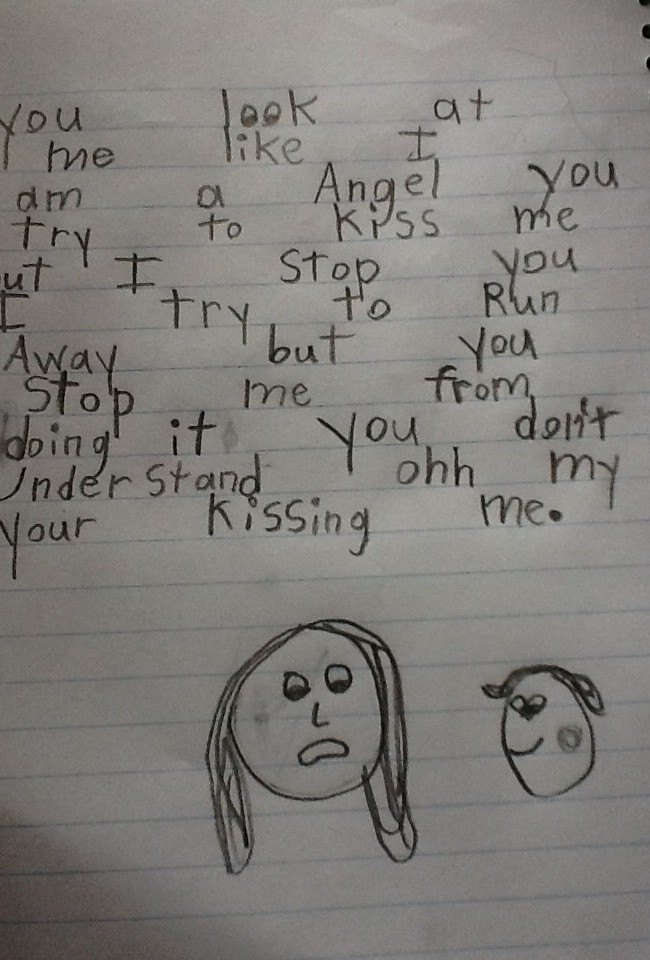 you look at
me like I
am a Angel you
try to kiss me
ut I stop you
I try to Run
Away but you
stop me from
doing it you don't
Under stand ohh my
your kissing me.